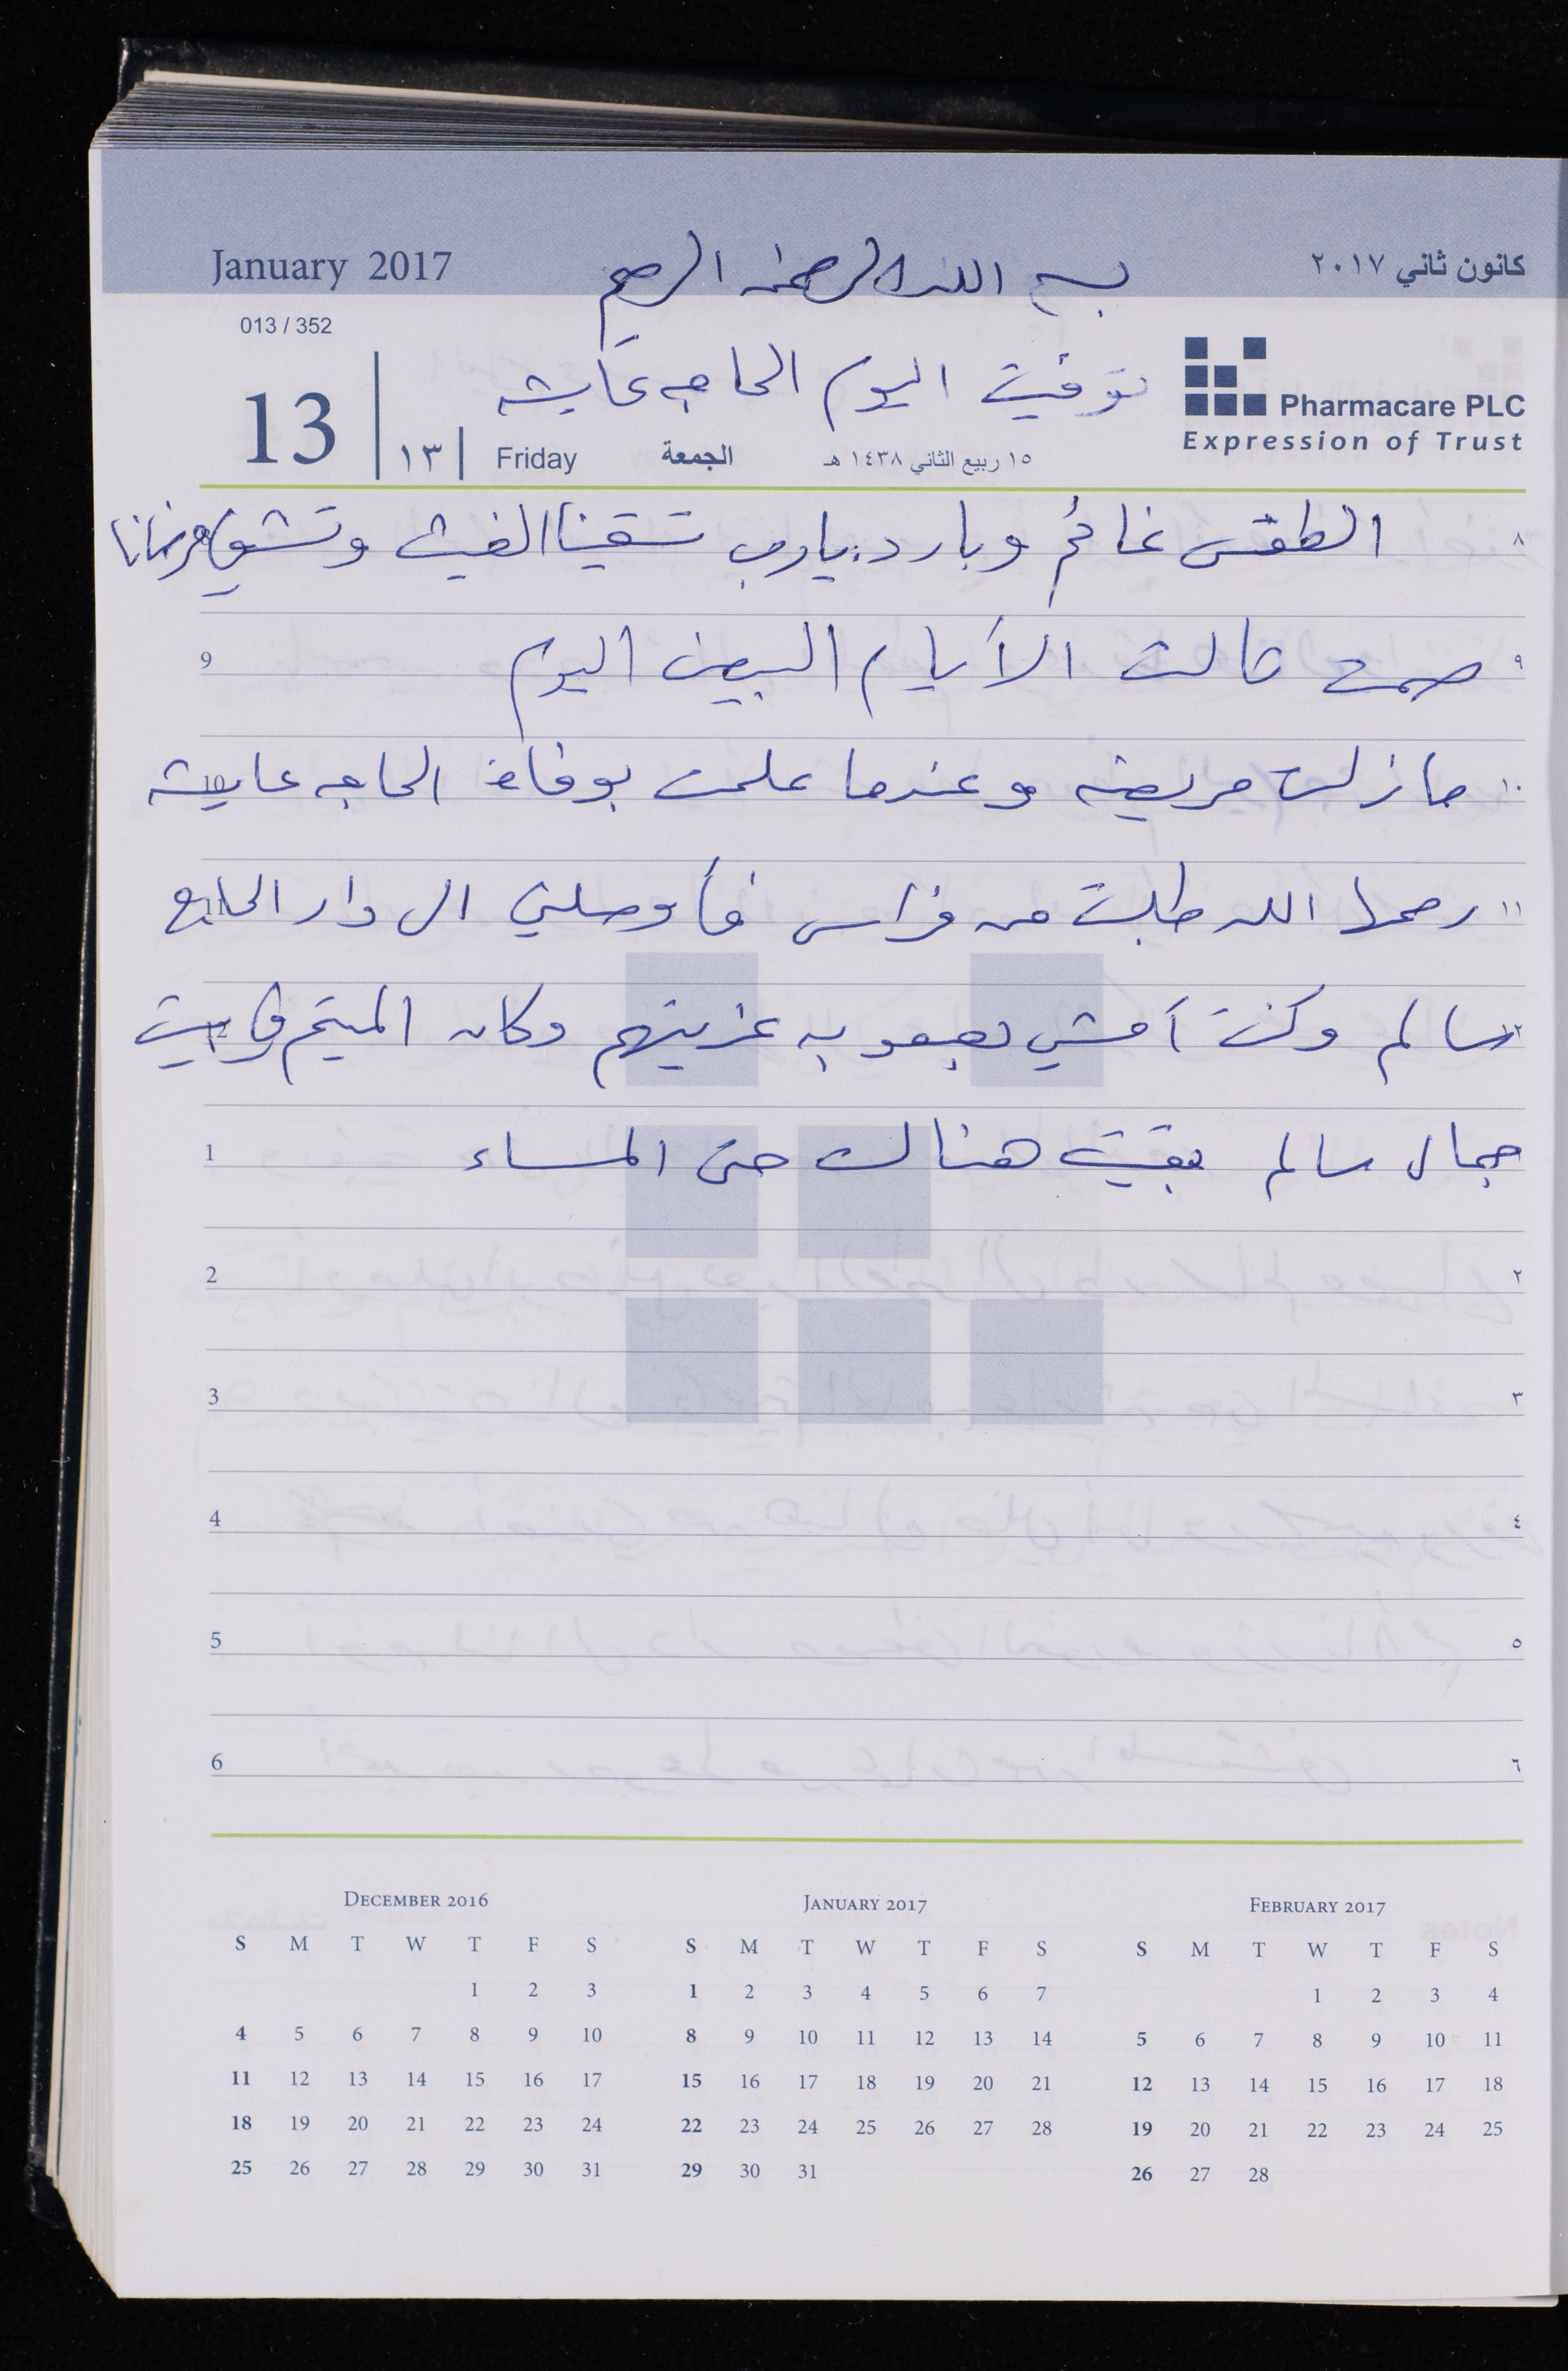 January 2017
بسم الله الرحمن الرحيم
كانون ثاني ٢٠١٧
013 / 352
توفيت اليوم الحاجه عايشه
Pharmacare PLC
Expression of Trust
13
١٣
Friday
الجمعة
١٥ ربيع الثاني ١٤٣٨ هـ
٨ الطقس غائم وبارد. يارب تسقينا الغيث وتشفي مرضانا
9 صمت ثالث الأيام البيض اليوم ٩
10 ما زلت مريضه وعندما علمت بوفاة الحاجه عايشه ١٠
11 رحمها الله طلبت من فراس فأوصلني الى دار الحاج ١١
12 سالم وكنت أمشي بصعوبه عزيتهم وكان الميتم في بيت ١٢
1 جمال سالم بقيت هناك حتى المساء
2 ٢
3 ٣
4 ٤
5 ٥
6 ٦
December 2016
S M T W T F S
1 2 3
4 5 6 7 8 9 10
11 12 13 14 15 16 17
18 19 20 21 22 23 24
25 26 27 28 29 30 31
January 2017
S M T W T F S
1 2 3 4 5 6 7
8 9 10 11 12 13 14
15 16 17 18 19 20 21
22 23 24 25 26 27 28
29 30 31
February 2017
S M T W T F S
1 2 3 4
5 6 7 8 9 10 11
12 13 14 15 16 17 18
19 20 21 22 23 24 25
26 27 28